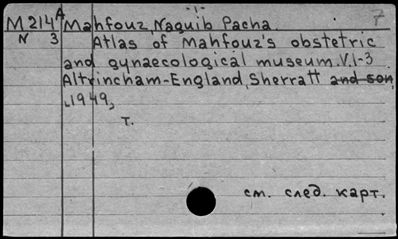 7
M 214A Mahfouz, Naguib Pacha.
N 3 Atlas of Mahfouz's obstetric
and gynaecological museum. V.1-3
Altrincham-England, Sherratt and son,
1949,
T.
см. след. карт.